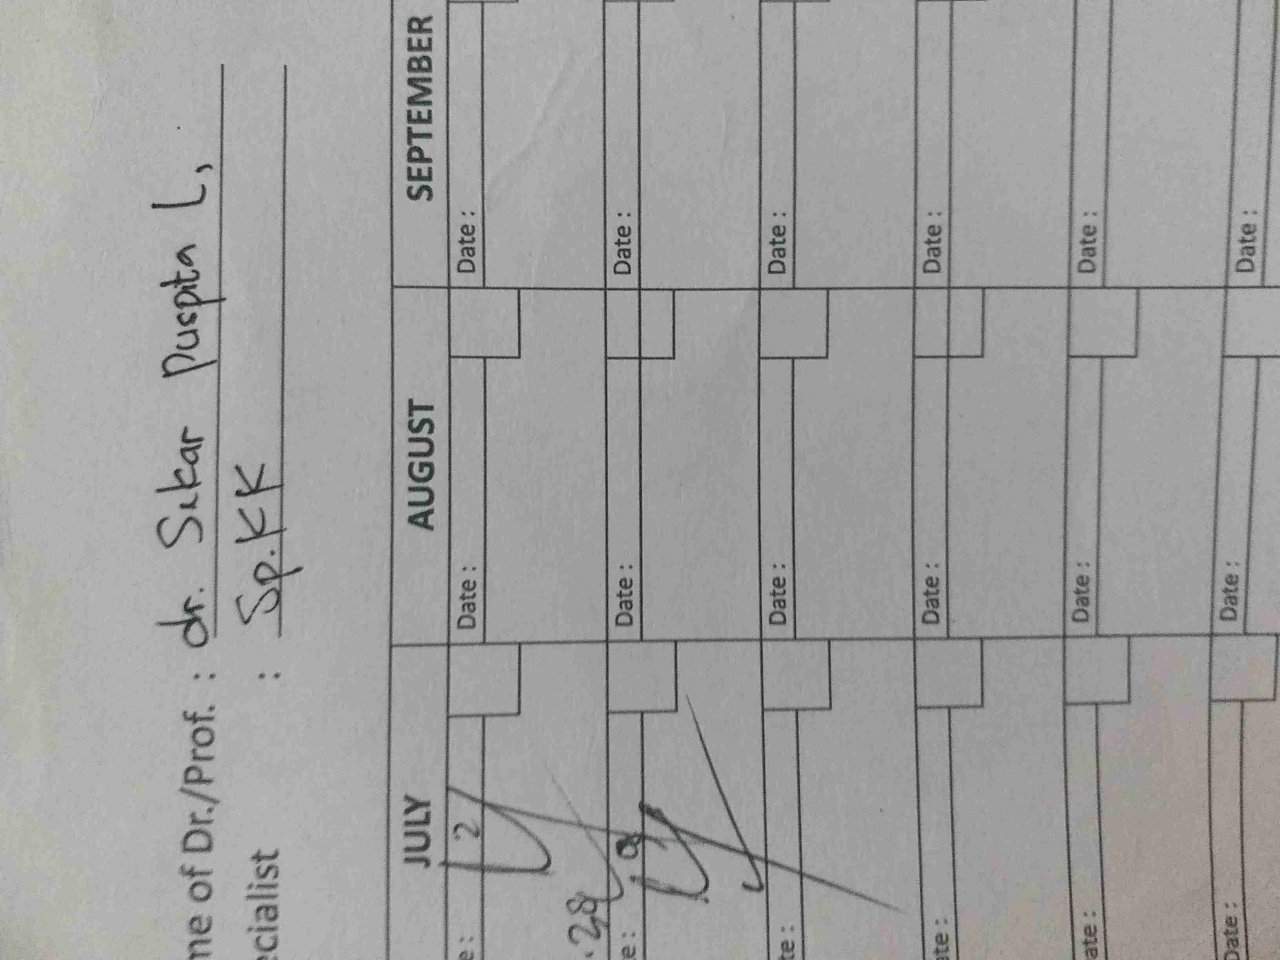 me of Dr./Prof. : dr. Sekar Puspita L,
ecialist : Sp.KK
JULY AUGUST SEPTEMBER
e : 2 Date : Date :
. 28
e : 9 Date : Date :
te : Date : Date :
ate : Date : Date :
ate : Date : Date :
Date : Date : Date :